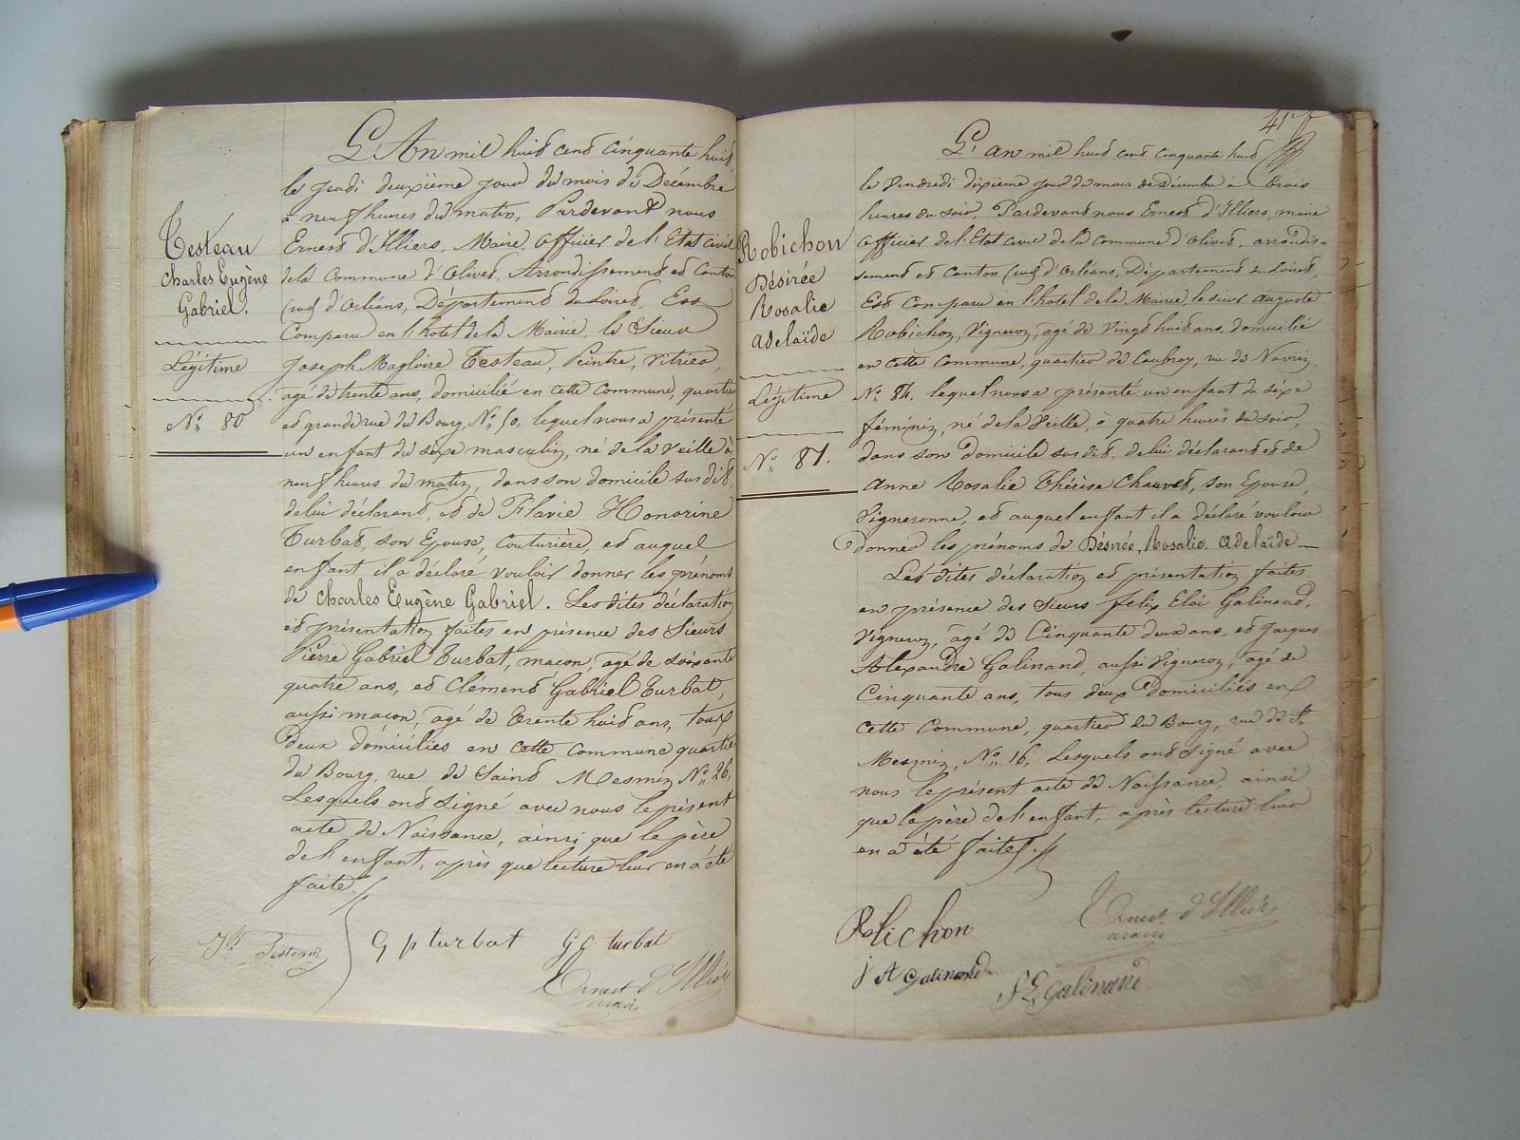 Testeau
Charles Eugène
Gabriel.
Légitime
N° 80
L'An mil huit cent cinquante huit
le jeudi deuxième jour du mois de Décembre
à neuf heures du matin, Pardevant nous
Ernest d'Illiers, Maire, officier de l'Etat civil
de la Commune d'Olivet, Arrondissement et Canton
(sud) d'Orléans, Département du Loiret, Est
Comparu en l'hotel de la Mairie, le Sieur
Joseph Magloire Testeau, Peintre, Vitrier,
agé de trente ans, domicilié en cette Commune, quartier
et grande rue du Bourg, N° 50, lequel nous a présenté
un enfant du sexe masculin, né de la veille à
neuf heures du matin, dans son domicile susdit,
de lui déclarant, et de Flavie Honorine
Turbat, son Epouse, Couturière, et auquel
enfant il a déclaré vouloir donner les prénoms
de Charles Eugène Gabriel. Les dites déclaration
et présentation faites en présence des Sieurs
Pierre Gabriel Turbat, maçon, agé de soixante
quatre ans, et Clément Gabriel Turbat,
aussi maçon, agé de trente huit ans, tous
deux domiciliés en cette commune quartier
du Bourg, rue de Saint Mesmin N° 26,
Lesquels ont signé avec nous le présent
acte de Naissance, ainsi que le père
de l'enfant, après que lecture leur en a été
faite.
Testeau
G p turbat
G C turbat
Ernest d'Illiers
maire
41
Robichon
Désirée
Rosalie
Adelaïde
Légitime
N° 81.
L'an mil huit cent cinquante huit
le Vendredi dixième jour du mois de Décembre à trois
heures du soir, Pardevant nous Ernest d'Illiers, maire
officier de l'Etat civil de la Commune d'Olivet, arrondis-
sement et Canton (sud) d'Orléans, Département du Loiret,
Est Comparu en l'hotel de la Mairie, le sieur Auguste
Robichon, Vigneron, agé de Vingt huit ans, domicilié
en cette Commune, quartier de Caubray, rue de
N° 84. lequel nous a présenté un enfant du sexe
féminin, né de la Veille, à quatre heures du soir,
dans son domicile susdit, de lui déclarant et de
Anne Rosalie Thérèse Chauvet, son Epouse,
Vigneronne, et auquel enfant il a déclaré vouloir
donner les prénoms de Désirée, Rosalie, Adelaïde
Les dites déclaration et présentation faites
en présence des Sieurs Felix Eloi Galinand,
Vigneron, agé de Cinquante deux ans, et Jacques
Alexandre Galinand, aussi Vigneron, agé de
Cinquante ans, tous deux domiciliés en
cette Commune, quartier du Bourg, rue de St.
Mesmin, N° 16, Lesquels ont signé avec
nous le présent acte de Naissance, ainsi
que le père de l'enfant, après lecture leur
en a été faite.
Robichon
Ernest d'Illiers
maire
j A Galinand
f E Galinand